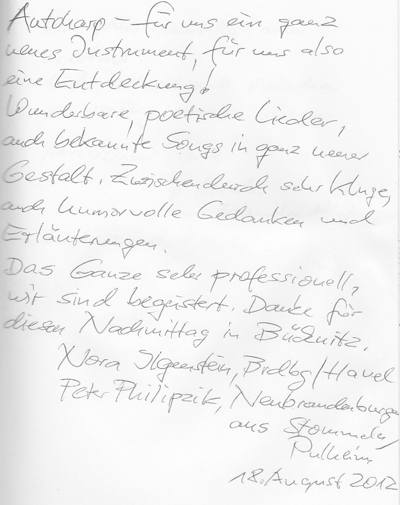 Autoharp – für uns ein ganz
neues Instrument, für uns also
eine Entdeckung!
Wunderbare, poetische Lieder,
auch bekannte Songs in ganz neuer
Gestalt. Zwischendurch sehr kluge,
auch humorvolle Gedanken und
Erläuterungen.
Das Ganze sehr professionell,
wir sind begeistert. Danke für
diesen Nachmittag in Bücknitz.
Nora Ilgenstein, Brdbg/Havel
Peter Philipzik, Neubrandenburger
aus Stommeln/
Pulheim
18. August 2012